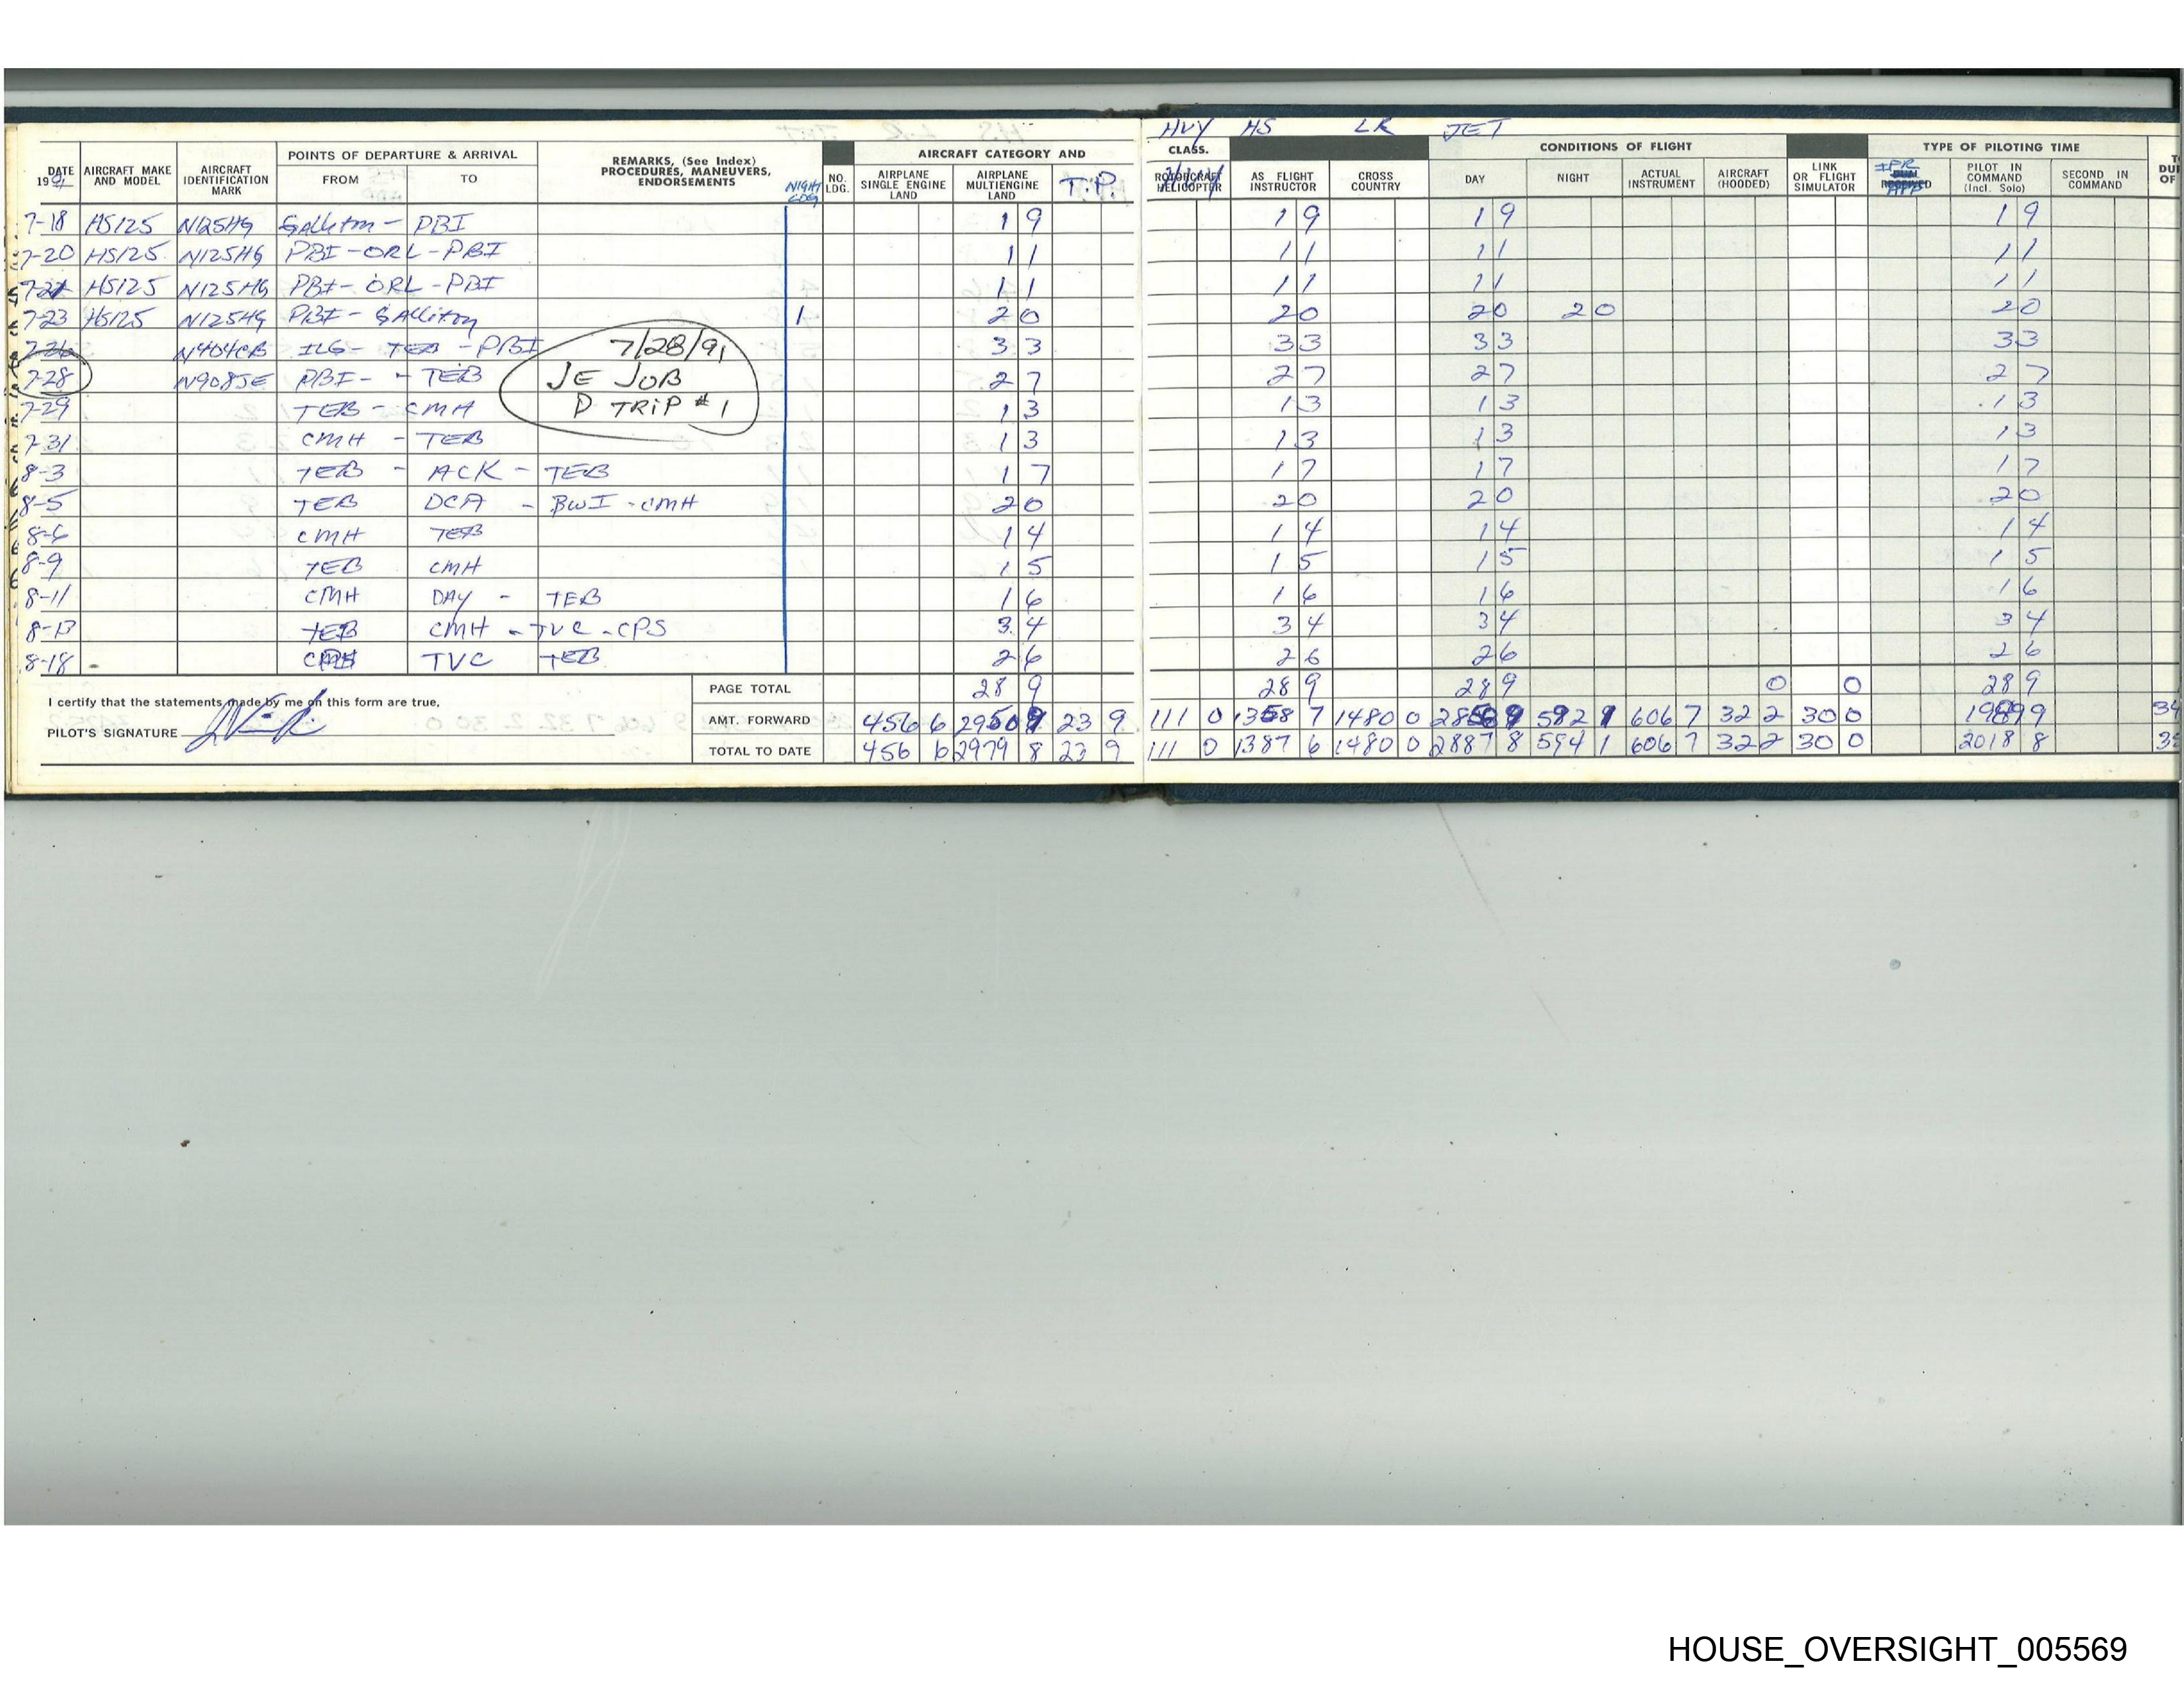 HVY HS LR JET
DATE 1991 AIRCRAFT MAKE AND MODEL AIRCRAFT IDENTIFICATION MARK POINTS OF DEPARTURE & ARRIVAL FROM TO REMARKS, (See Index) PROCEDURES, MANEUVERS, ENDORSEMENTS NIGHT LDG NO. LDG. AIRCRAFT CATEGORY AND CLASS. AIRPLANE SINGLE ENGINE LAND AIRPLANE MULTIENGINE LAND T.P. ROTORCRAFT HELICOPTER HVY AS FLIGHT INSTRUCTOR CROSS COUNTRY CONDITIONS OF FLIGHT DAY NIGHT ACTUAL INSTRUMENT AIRCRAFT (HOODED) LINK OR FLIGHT SIMULATOR TYPE OF PILOTING TIME IPR APP PILOT IN COMMAND (Incl. Solo) SECOND IN COMMAND
7-18 HS125 N125HG PBI 1 9 1 9 1 9 1 9
7-20 HS125 N125HG PBI-ORL-PBI 1 1 1 1 1 1 1 1
HS125 N125HG PBI-ORL-PBI 1 1 1 1 1 1 1 1
7-23 HS125 N125HG PBI - 1 2 0 2 0 2 0 2 0 2 0
7-26 N404CB ILG - TEB - PBI 7/28/91 3 3 3 3 3 3 3 3
7-28 N908JE PBI - - TEB JE JOB 2 7 2 7 2 7 2 7
7-29 TEB - CMH P TRIP #1 1 3 1 3 1 3 1 3
7-31 CMH - TEB 1 3 1 3 1 3 1 3
8-3 TEB - ACK - TEB 1 7 1 7 1 7 1 7
8-5 TEB DCA - BWI - CMH 2 0 2 0 2 0 2 0
8-6 CMH TEB 1 4 1 4 1 4 1 4
8-9 TEB CMH 1 5 1 5 1 5 1 5
8-11 CMH DAY - TEB 1 6 1 6 1 6 1 6
8-13 TEB CMH - TVC - CPS 3 4 3 4 3 4 3 4
8-18 TVC TEB 2 6 2 6 2 6 2 6
I certify that the statements made by me on this form are true,
PILOT'S SIGNATURE
PAGE TOTAL 28 9 28 9 28 9 0 0 28 9
AMT. FORWARD 456 6 2950 9 23 9 111 0 1358 7 1480 0 592 1 606 7 32 2 30 0 1989 9
TOTAL TO DATE 456 6 2979 8 23 9 111 0 1387 6 1480 0 2887 8 594 1 606 7 32 2 30 0 2018 8
HOUSE_OVERSIGHT_005569